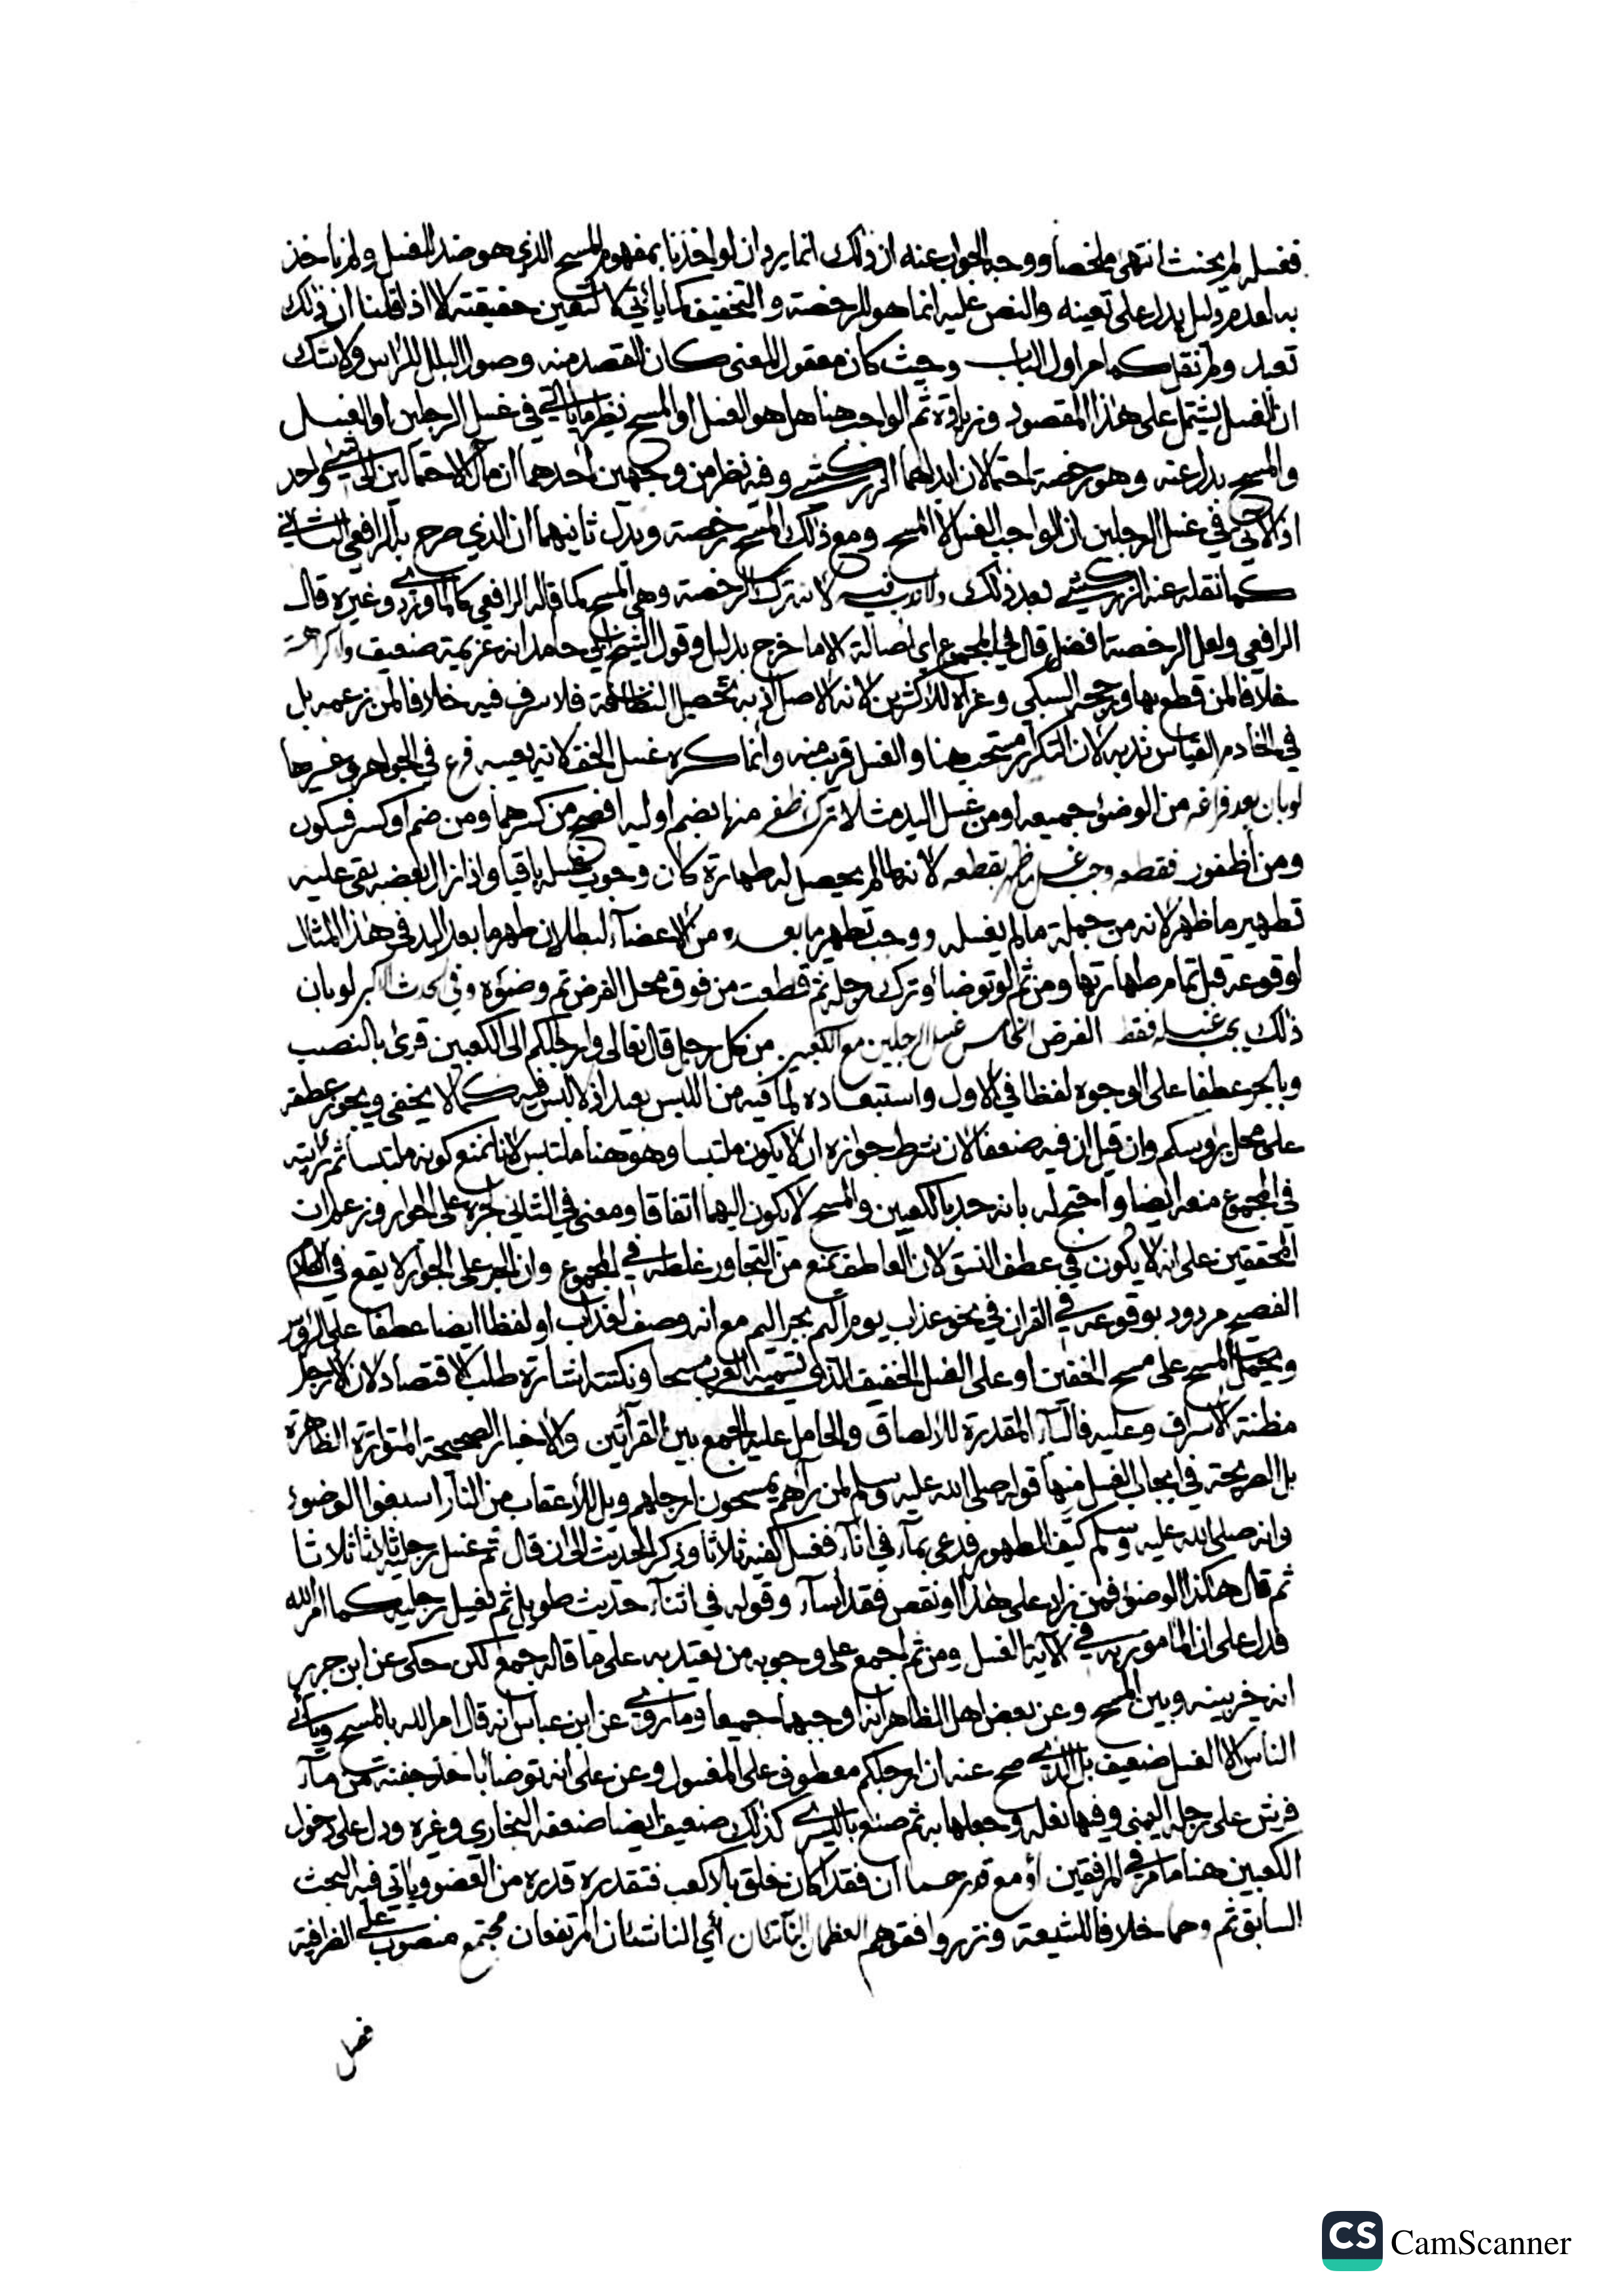 فغسله لم يحنث انتهى ملخصا ووجه الجواب عنه ان ذلك انما يرد ان لو اخذنا بمفهوم المسح الذي هو ضد الغسل ولم ناخذ
به لعدم دليل يدل على تعينه والنص عليه انما هو للرخصة والتخفيف كما ياتي لا لتعين حقيقته لا اذا قلنا ان ذلك
تعبد ولم نقل كما مر اول الباب وحيث كان معقول المعنى كان القصد منه وصول البلل للراس ولا شك
ان الغسل يشتمل على هذا المقصود وزيادة ثم الواجب هنا هل هو الغسل او المسح نظير ما ياتي في غسل الرجلين او الغسل
والمسح بدل عنه وهو رخصة احتمالان ابداهما الزركشي وفيه نظر من وجهين احدهما ان مآل الاحتمالين الى شئ واحد
اذ الاتي في غسل الرجلين ان الواجب الغسل لا المسح ومع ذلك المسح رخصة وبدل ثانيهما ان الذي صرح به الرافعي الثاني
كما نقله عنه الزركشي بعد ذلك ولا ندب فيه لانه ترك الرخصة وهي المسح كما قاله الرافعي كالماوردي وغيره قال
الرافعي ولعل الرخصة افضل قال في المجموع اي اصالة لا ما خرج بدليل وقول الشيخ ابي حامد انه عزيمة ضعيف ولا كراهة
خلافا لمن قطع بها ورجحه السبكي وعزاه للاكثرين لانه الاصل اذ به تحصيل النظافة فلا سرف فيه خلافا لمن زعمه بل
في الخادم القياس ندبه لان التكرار مستحب هنا والغسل قريب منه وانما كره غسل الخف لانه يعيبه فرع في الجواهر وغيرها
لو بان بعد فراغه من الوضوء جميعه او من غسل اليد مثلا ترك ظفر منها بضم اوليه افصح من كسرهما ومن ضم او كسر فسكون
ومن اظفور فقطعه وجب غسل ما ظهر بقطعه لانه لما لم يحصل له طهارة كان وجوب غسله باقيا واذا زال بعضه بقي عليه
تطهير ما ظهر لانه من جملة ما لم يغسله ووجب تطهير ما بعده من الاعضاء لبطلان طهر ما بعد اليد في هذا المثال
لوقوعه قبل تمام طهارتها ومن ثم لو توضا وترك رجله ثم قطعت من فوق محل الفرض تم وضوءه وفي الحدث الاكبر لو بان
ذلك يجب غسله فقط الفرض الخامس غسل الرجلين مع الكعبين من كل رجل قال تعالى وارجلكم الى الكعبين قرئ بالنصب
وبالجر عطفا على الوجوه لفظا في الاول واستبعاده لما فيه من اللبس بعيد اذ لا لبس فيه كما لا يخفى ويجوز عطفه
على محل برؤسكم وان قيل ان فيه ضعفا لان شرط جوازه ان لا يكون ملتبسا وهو هنا ملتبس لانا نمنع كونه ملتبسا ثم رايته
في المجموع منعه ايضا واحتج له بانه حد بالكعبين والمسح لا يكون اليهما اتفاقا ومعنى في الثاني لجره على الجوار وزعم ان
المحققين على انه لا يكون في عطف النسق لان العاطف يمنع من التجاور غلطه في المجموع وان الجر على الجوار لا يقع في الكلام
الفصيح مردود بوقوعه في القران في نحو عذاب يوم اليم بجر اليم مع انه وصف لعذاب او لفظا ايضا عطفا على الرؤس
ويحمل المسح على مسح الخفين او على الغسل الخفيف الذي تسميه العرب مسحا ونكتته اشارة طلب الاقتصاد لان الارجل
مظنة الاسراف وعليه فالباء المقدرة للالصاق والحامل عليه الجمع بين القرآتين والاخبار الصحيحة المتواترة الظاهرة
بل الصريحة في ايجاب الغسل منها قوله صلى الله عليه وسلم لمن رآهم يمسحون ارجلهم ويل للاعقاب من النار اسبغوا الوضوء
وانه صلى الله عليه وسلم كيف الطهور فدعى بماء في اناء فغسل كفيه ثلاثا وذكر الحديث الى ان قال ثم غسل رجليه ثلاثا ثلاثا
ثم قال هكذا الوضوء فمن زاد على هذا او نقص فقد اساء وقوله في اثناء حديث طويل ثم تغسل رجليه كما امر الله
فدل على ان المامور به في الآية الغسل ومن ثم اجمع على وجوبه من يعتد به على ما قاله جمع لكن حكى عن ابن جرير
انه خير بينه وبين المسح وعن بعض اهل الظاهر انه اوجبهما جميعا وما روي عن ابن عباس انه قال امر الله بالمسح ويابى
الناس الا الغسل ضعيف بل الذي صح عنه ان ارجلكم معطوف على المغسول وعن علي انه توضا باخذ حفنة من ماء
فرش على رجله اليمنى وفيها نعله وجعلها به ثم صنع باليسرى كذلك ضعيف ايضا ضعفه البخاري وغيره ودل على دخول
الكعبين هنا ما مر في المرفقين او مع قدرهما ان فقدا كان خلق بلا كعب فتقدره قدره من العضو وياتي فيه البحث
السابق ثم وهما خلافا للشيعة ومن وافقهم العظمان الناتئان اي الناشئان المرتفعان مجتمع منصوب على الظرفية
فصل
CS CamScanner